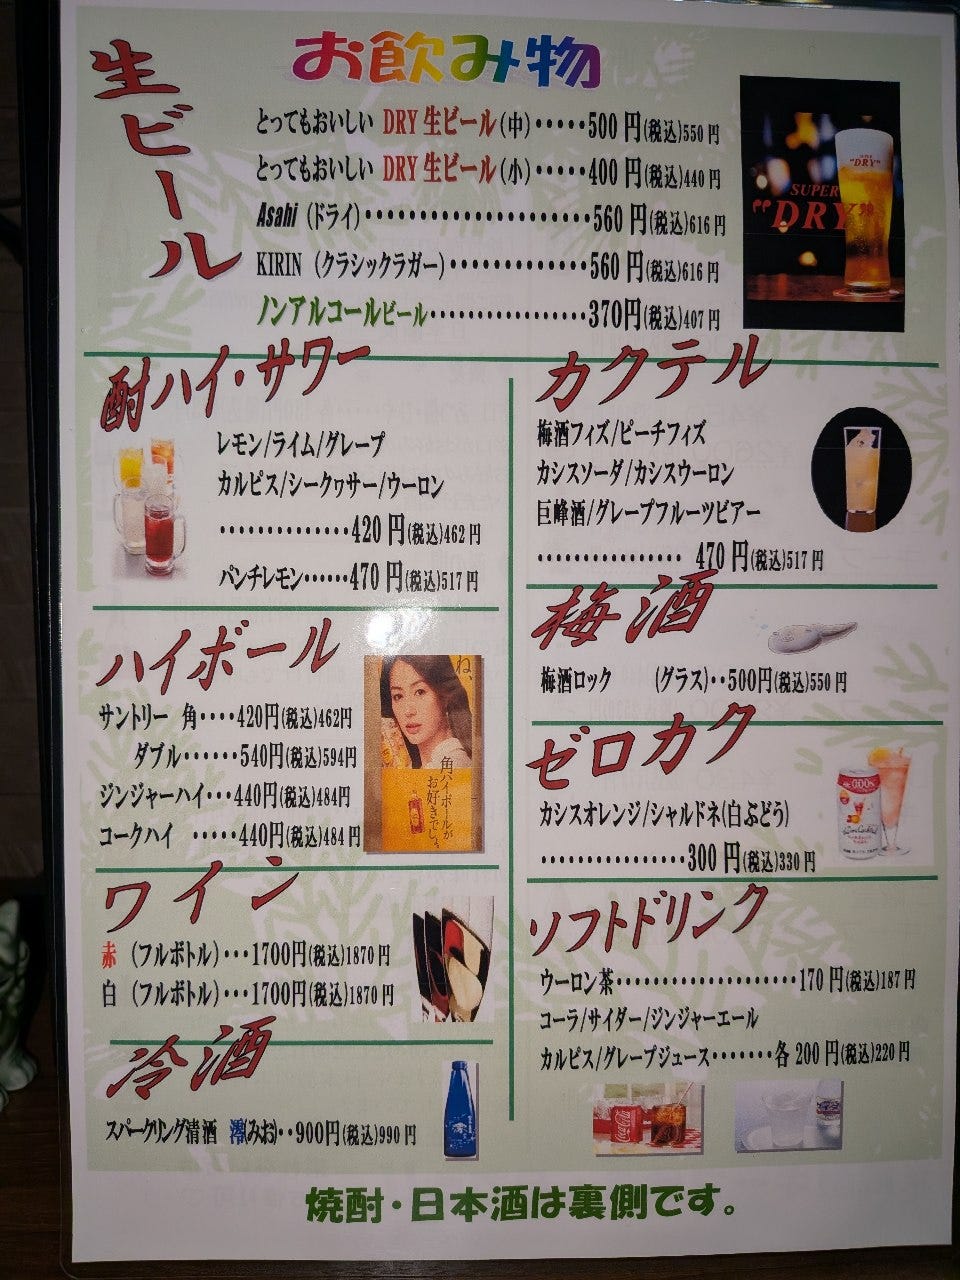 お飲み物
生ビール
とってもおいしい DRY 生ビール(中)・・・・・500 円(税込)550 円
とってもおいしい DRY 生ビール(小)・・・・・400 円(税込)440 円
Asahi (ドライ)・・・・・・・・・・・・・・・・・・・・・560 円(税込)616 円
KIRIN (クラシックラガー)・・・・・・・・・・・・・560 円(税込)616 円
ノンアルコールビール・・・・・・・・・・・・・・・・・370円(税込)407 円
SUPER
"DRY"
酎ハイ・サワー
レモン/ライム/グレープ
カルピス/シークヮサー/ウーロン
・・・・・・・・・・・・・・420 円(税込)462 円
パンチレモン・・・・・・470 円(税込)517 円
ハイボール
サントリー 角・・・・420円(税込)462円
ダブル・・・・・・540円(税込)594円
ジンジャーハイ・・・440円(税込)484円
コークハイ ・・・・・440円(税込)484 円
ね、
角ハイボールが
お好きでしょ
ワイン
赤 (フルボトル)・・・1700円(税込)1870 円
白 (フルボトル)・・・1700円(税込)1870 円
冷酒
スパークリング清酒 澪(みお)・・900円(税込)990 円
澪
カクテル
梅酒フィズ/ピーチフィズ
カシスソーダ/カシスウーロン
巨峰酒/グレープフルーツビアー
・・・・・・・・・・・・・・・・ 470 円(税込)517 円
梅酒
梅酒ロック (グラス)・・500円(税込)550 円
ゼロカク
カシスオレンジ/シャルドネ(白ぶどう)
・・・・・・・・・・・・・・・・300 円(税込)330 円
0.00%
ソフトドリンク
ウーロン茶・・・・・・・・・・・・・・・・・・・170 円(税込)187 円
コーラ/サイダー/ジンジャーエール
カルピス/グレープジュース・・・・・・・各 200 円(税込)220 円
Coca-Cola
焼酎・日本酒は裏側です。